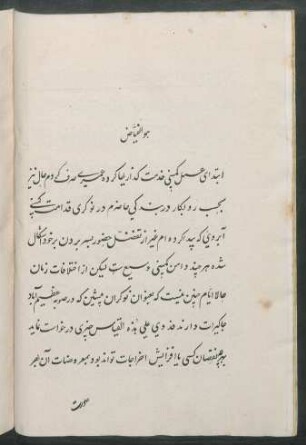 هوالفیاض
ابتدای عمل کمپنی خدمت گذاریها کرده عمری صرف کردم حال نیز
بموجب روبکار در بندگی حاضرم در نوکری قدامت کمپنی
آبروی که پیدا کرده ام غیر از تفضل حضور بسر بردن برخود اشکال
شده هرچند دامن کمپنی وسیع ست لیکن از اختلافات زمان
حالا انام چنین نیست که بعنوان نوکران پیشین که در صوبه عظیم آباد
جاگیرات دارند فدوی علی هذه القیاس چیزی درخواست نماید
نقصان کسی یا افزایش اخراجات تواند بود بمعرضات آن